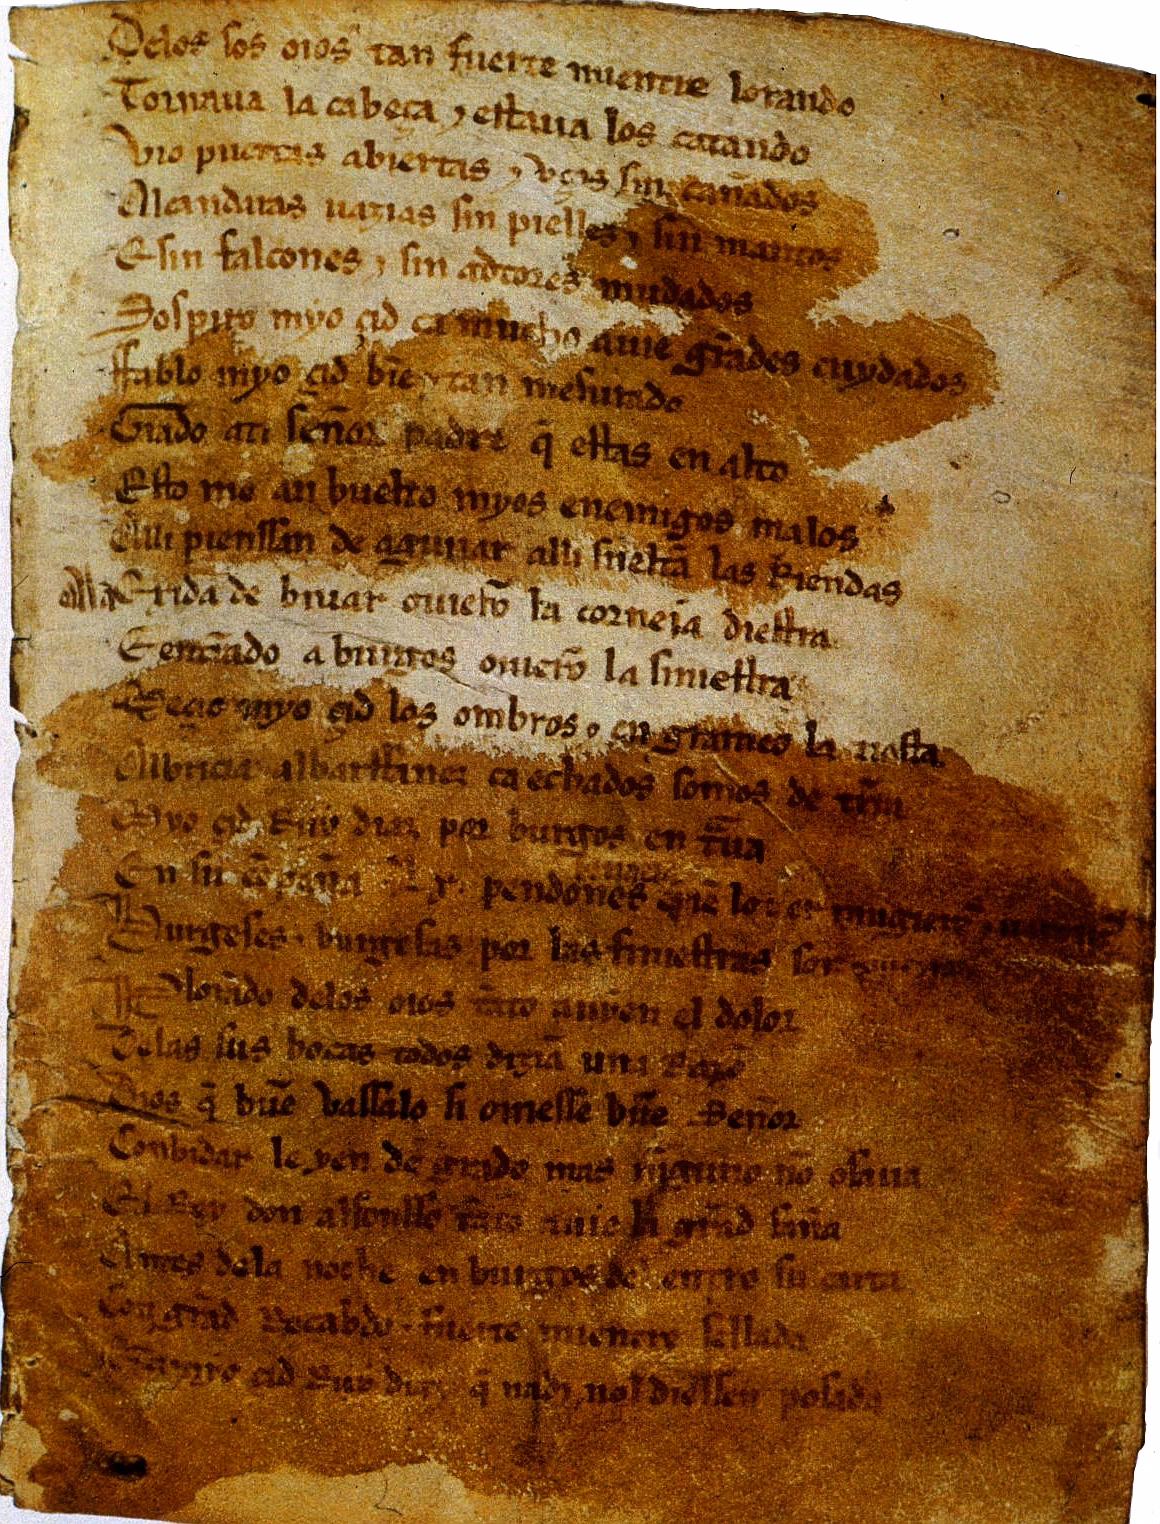 Delos sos oios tan fuerte mientre lorando
Tornaua la cabeça ⁊ estaua los catando
Vio puertas abiertas ⁊ vços sin cañados
Alcandaras uazias sin pielles ⁊ sin mantos
E sin falcones ⁊ sin adtores mudados
Sospiro myo çid ca mucho auie grãdes cuydados
ffablo myo çid biẽ ⁊ tan mesurado
Grado ati señor padre q̃ estas en alto
Esto me an buelto myos enemigos malos
Alli pienssan de aguiiar alli sueltã las Riendas
alla Exida de biuar ouierõ la corneia diestra
E entrãdo a burgos ouierõ la siniestra
Meçio myo çid los ombros ⁊ en grameo la tiesta
Albricia albarffanez ca echados somos de tr̃ra
Myo çid Ruy diaz por burgos en tr̃aua
En su cõpaña .Lx. pendones
Burgeses ⁊ burgesas por las finiestras son
Plorãdo delos oios tãto auyen el dolor
Delas sus bocas todos dizian una Razõ
Dios q̃ buẽ vassalo si ouiesse buẽ Señor
Conbidar le yen de grado mas ninguno nõ osaua
El Rey don alfonsso tãto auie la grãd saña
Antes dela noche en burgos del entro su carta
Con grãd Recabdo ⁊ fuerte mientre sellada
çid Ruy diaz q̃ nadi nol diessen posada